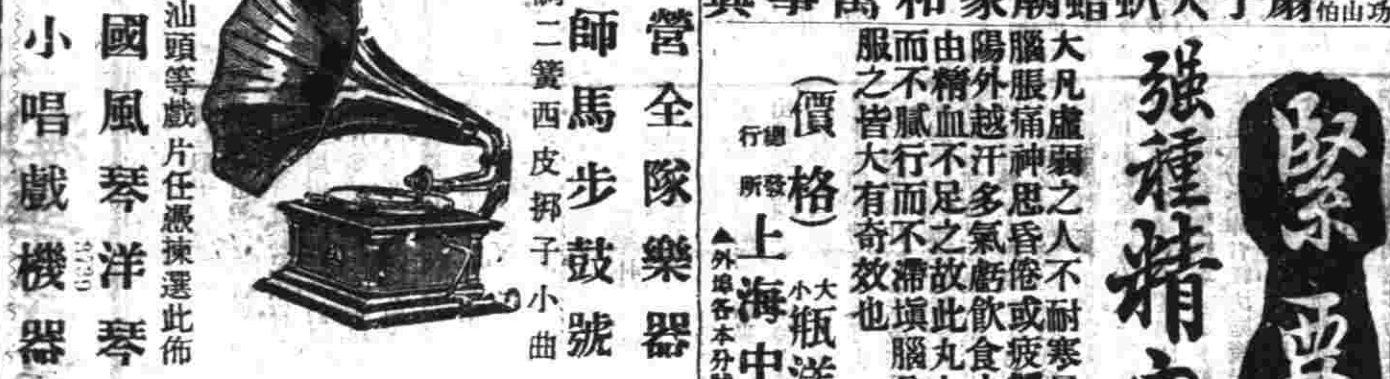 緊要
强種精
大凡虛弱之人不耐寒
腦脹痛神思昏倦或疲
陽外越汗多氣虧飲食
由精血不足之故此丸
而不膩行而不滯塡腦
服之皆大有奇效也
（價格）大小瓶洋
總發行所上海中
▲外埠各本分
營全隊樂器
師馬步鼓號
二簧西皮梆子小曲
汕頭等戲片任憑揀選此佈
國風琴洋琴
小唱戲機器